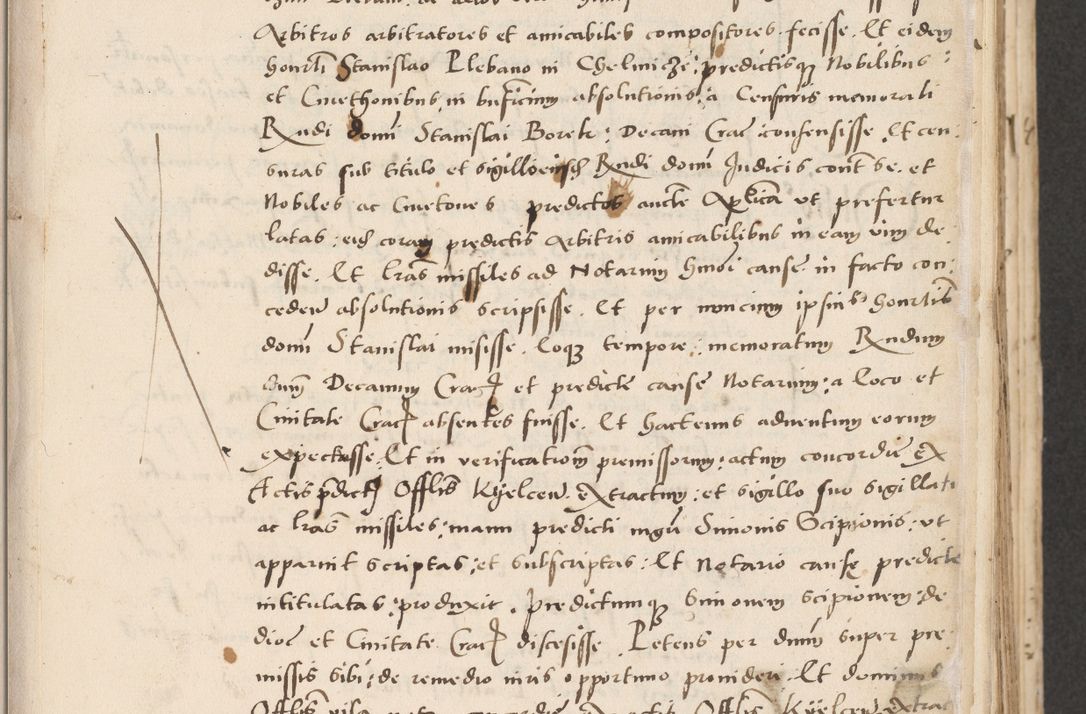 Arbitros arbitratores et amicabiles compositores fecisse. Et eidem
honorli Stanislao Plebano in Chelmicze: predictisq nobilibus:
et Cmethonibus, in bnficium absolutionis, a Censuris memorati
Rndi domi Stanislai Borek: Decani Crac consensisse. Et cen-
suras sub titulo et sigillo eiusd Rndi domi Judicis cont se. et
Nobiles ac Cmetones predictos aucte Aplica ut prefertur
latas: eisd coram predictis Arbitris amicabilibus in eam vim de
disse. Et lras missiles ad Notarium hmoi cause in facto con-
cedere absolutionis scripsisse. Et per nuncium ipsius honorlis
domi Stanislai misisse. Eoq tempore: memoratum Rndum
dnm Decanum Crac et predicte cause Notarium: a loco et
Civitate Crac absentes fuisse. Et hactenus adventum eorum
expectasse. Et in verificationem premissorum: actum concordie ex
Actis pdicti Offlis Kyelcen. extractum: et sigillo suo sigillati
ac lras missiles: manu predicti mgri Simonis Scipionis: ut
apparuit scriptas: et subscriptas: Et Notario cause predicte
intitulatas: produxit. Predictumq Simonem Scipionem: de
dioc et Civitate Crac discesisse. Petens per dnum super pre-
missis sibi: de remedio iuris opportuno provideri. Et dominus